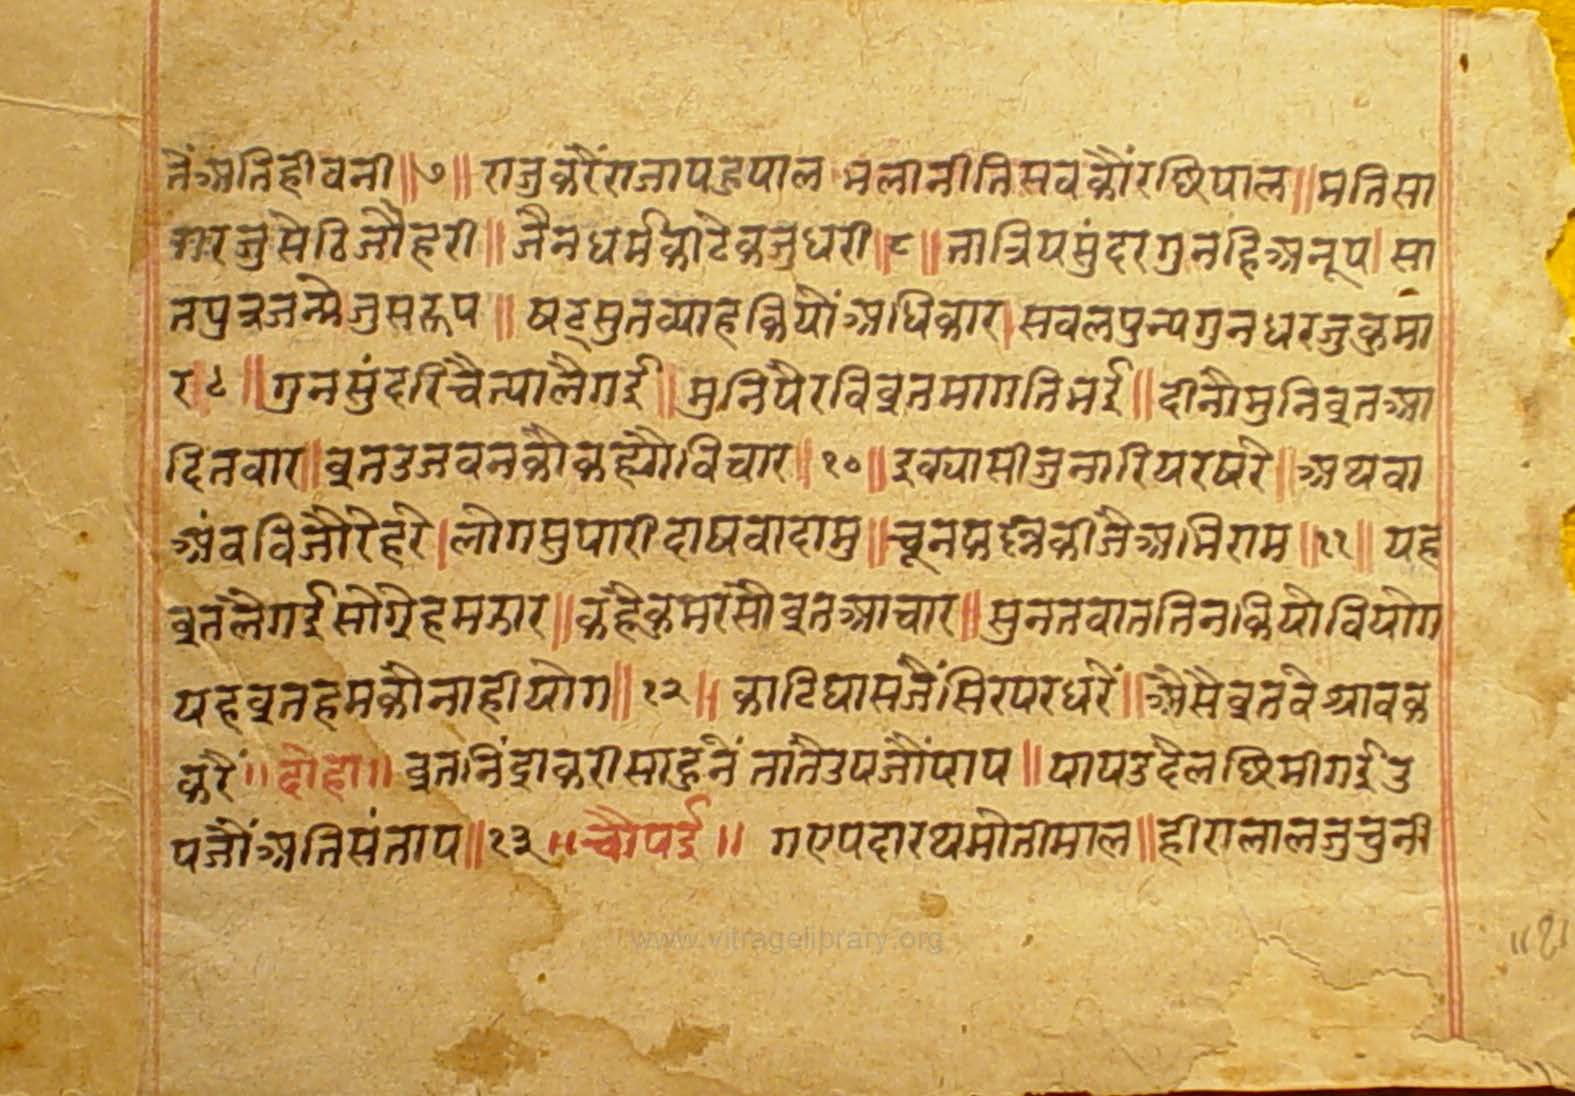 तैंअतिहीवनी॥७॥ राजुकरैंराजापहुपाल भलीनीतिसवकौंरछिपाल॥मतिसा
गरजुसेठिजौहरी॥जैनधर्मकीटेकजुधरी॥८॥तात्रियसुंदरगुनहिअनूप।सा
तपुत्रजन्मेजुसरूप॥षट्सुतव्याहकियौंअधिकार।सवलपुन्यगुनधरजुकुमा
र।९॥गुनसुंदरिचैत्यालैगई॥मुनिपैरविव्रतमागतिभई॥दीनौमुनिव्रतआ
दितवार॥व्रतउजवनकौकह्यौविचार॥१०॥इक्यासीजुनारियरषरे॥अथवा
अंवविजौरेहरे।लौंगसुपारीदाषवादामु॥चूनफकइत्रकीजैअभिराम॥११॥यह
व्रतलैगईसोग्रेहमझार॥कहैकुमरसौव्रतआचार॥सुनतवाततिनकियोवियोग
यहव्रतहमकौनाहीयोग॥१२॥काटिघासजैंसिरपरधरें॥अैसैव्रतवेश्रावक
करैं॥दोहा॥व्रतनिंद्राकरीसाहुनैं तातैंउपजौंपाप॥पापउदैलछिमीगईउ
पजौंअतिसंताप॥१३॥चौपई॥ गएपदारथमोतीमाल॥हीरालालजुचुनी
www.vitragelibrary.org